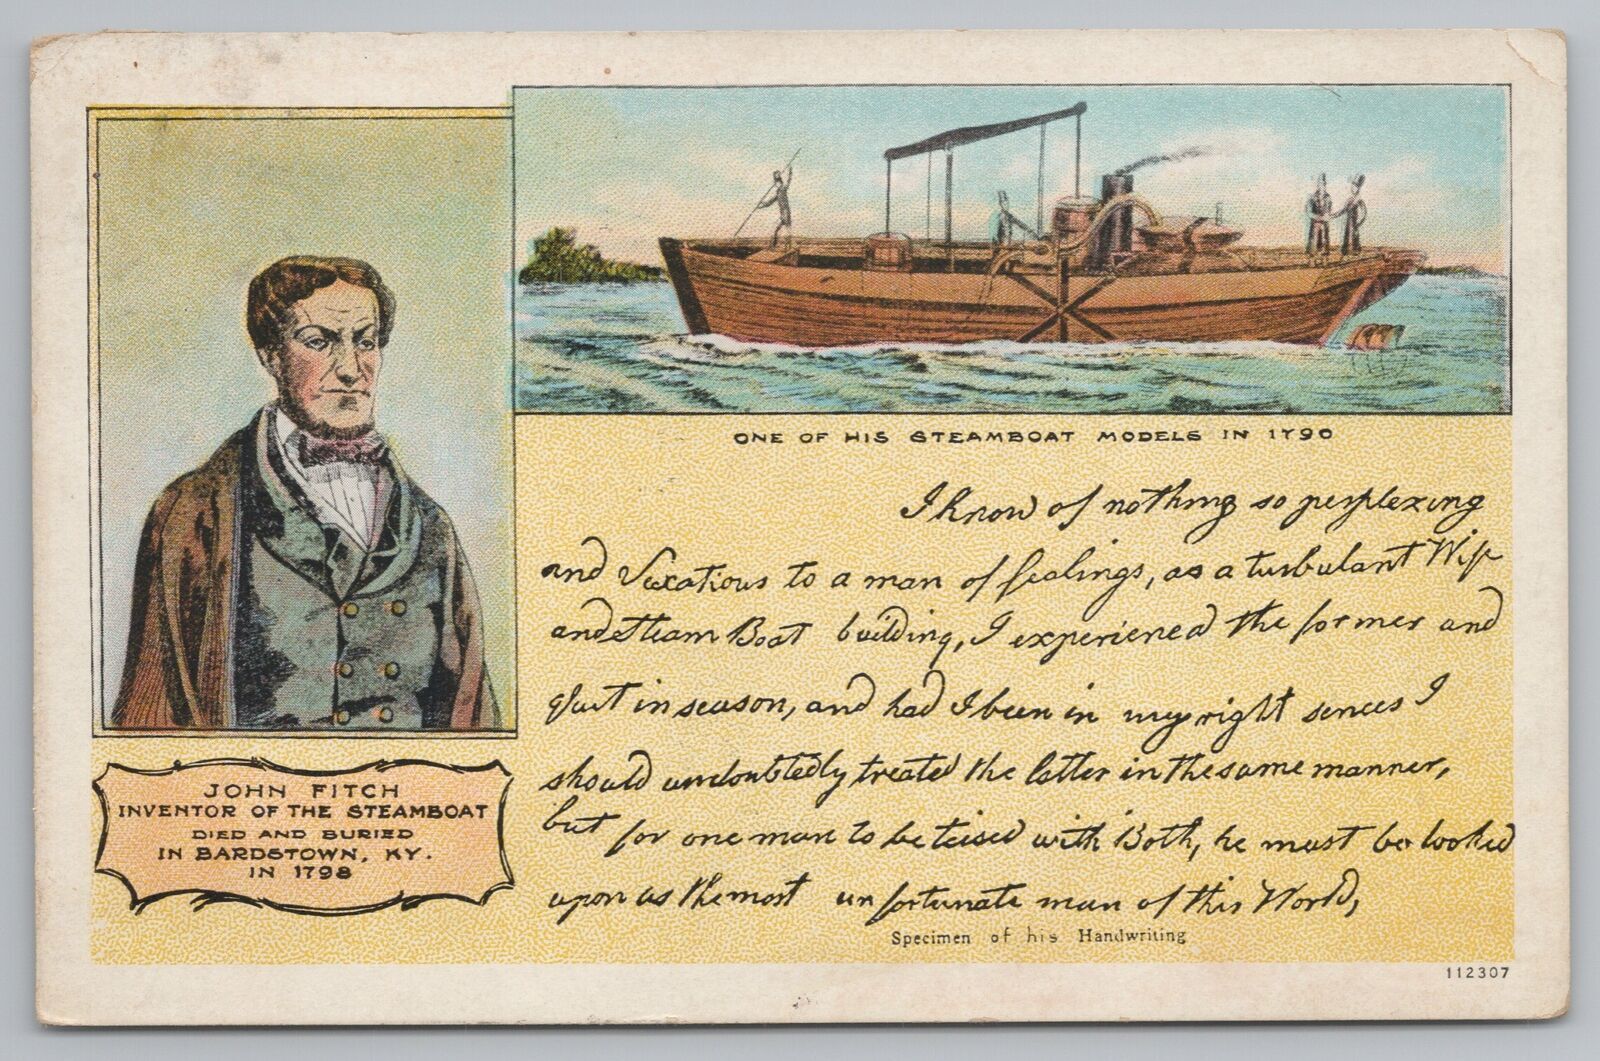 ONE OF HIS STEAMBOAT MODELS IN 1790
I know of nothing so perplexing
and Vexatious to a man of fealings, as a turbulant Wife
and Steam Boat building, I experienced the former and
quit in season, and had I been in my right sences I
should undoubtedly treated the latter in the same manner,
but for one man to be teised with Both, he must be looked
upon as the most unfortunate man of this World,
Specimen of his Handwriting
JOHN FITCH
INVENTOR OF THE STEAMBOAT
DIED AND BURIED
IN BARDSTOWN, KY.
IN 1798
112307